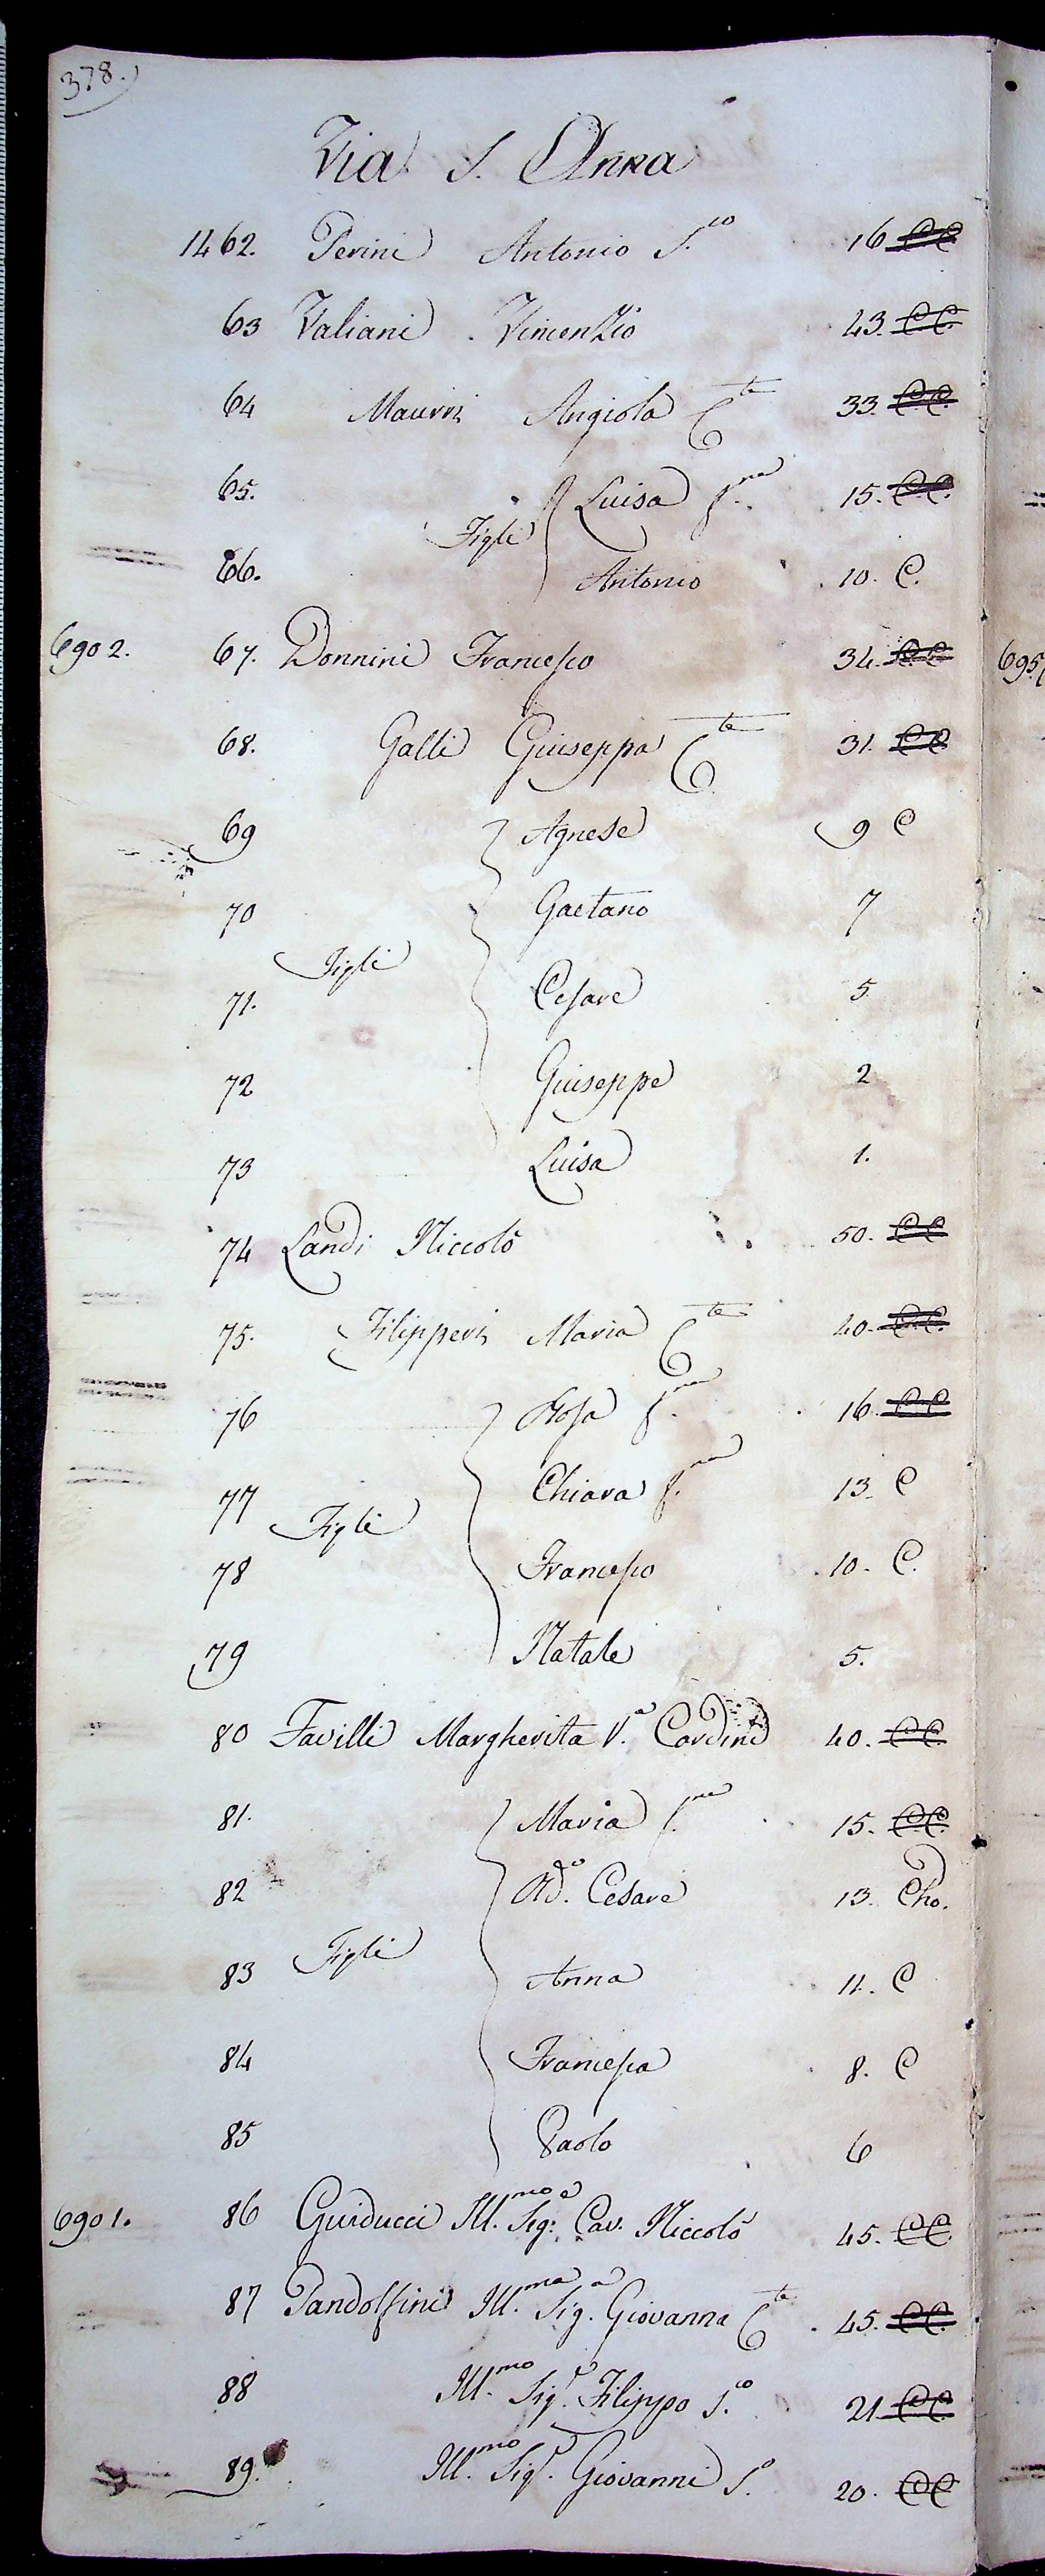 378.
Via S. Anna
1462. Perini Antonio S.to 16 CC
63 Valiani Vincenzio 43. CC.
64 Maurri Angiola C.te 33. CC.
65. Luisa f.na 15. CC.
Figli
66. Antonio 10. C.
6902. 67. Donnini Francesco 34. CC
68. Galli Giuseppa C.te 31. CC
69 Agnese 9 C
70 Gaetano 7
Figli
71. Cesare 5
72 Giuseppe 2
73 Luisa 1.
74 Landi Niccolò 50. CC
75. Filipperi Maria C.te 40. CC.
76 Rosa f.na 16. CC
77 Chiara f.na 13. C
Figli
78 Francesco 10. C.
79 Natale 5.
80 Favilli Margherita V.a Cardini 40. CC.
81. Maria f.na 15. CC.
82 Ad.o Cesare 13. Cho.
Figli
83 Anna 11. C
84 Francesca 8. C
85 Paolo 6
6901. 86 Guiducci Ill.mo Sig.e Cav. Niccolò 45. CC.
87 Pandolfini Ill.ma Sig.a Giovanna C.te 45. CC.
88 Ill.mo Sig.r Filippo S.to 21 CC.
89. Ill.mo Sig.r Giovanni S.o 20. CC